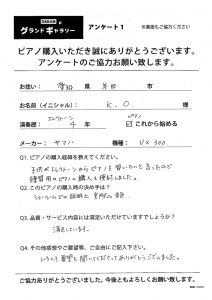 DREAM ×
グランドギャラリー
アンケート1
※裏面もご協力ください
ピアノ購入いただき誠にありがとうございます。
アンケートのご協力お願い致します。
お住い： 愛知 県 半田 市
お名前（イニシャル）： K.O. 様
エレクトーン ピアノ
演奏歴： 4 年 機種： ☑これから始める
メーカー： ヤマハ 機種： UX 300
Q1. ピアノの購入経緯を教えてください。
子供がエレクトーンからピアノを習いたいと言ったので
練習用のピアノの購入を検討しました。
Q2. このピアノの購入時の決め手は？
ショールームでの試弾と実際の音色
Q3. 品質・サービス内容には満足いただけていますでしょうか？
満足しています。
Q4. その他感想やご要望等、ご自由にご記入下さい。
いろいろ要望を聞いてくださってありがとうございました。
ご協力ありがとうございました。今後ともよろしくお願い致します。